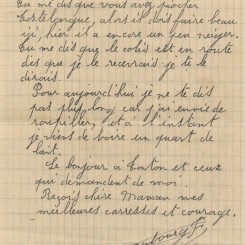 tu me dés que vous avez piocher
alors il dois faire beau
ici, hier il a encore un peu neiger.
tu me dés que le colis est en route
dés que je le recevrais je te le
dirais.
Pour aujourd'hui je ne te dés
pas plus long car j'ai envie de
roupiller, et à l'instant
je viens de boire un quart de
lait.
Le bonjour à Gaston et ceux
qui demandent de moi.
Reçois chère Maman mes
meilleures carresses et courage.